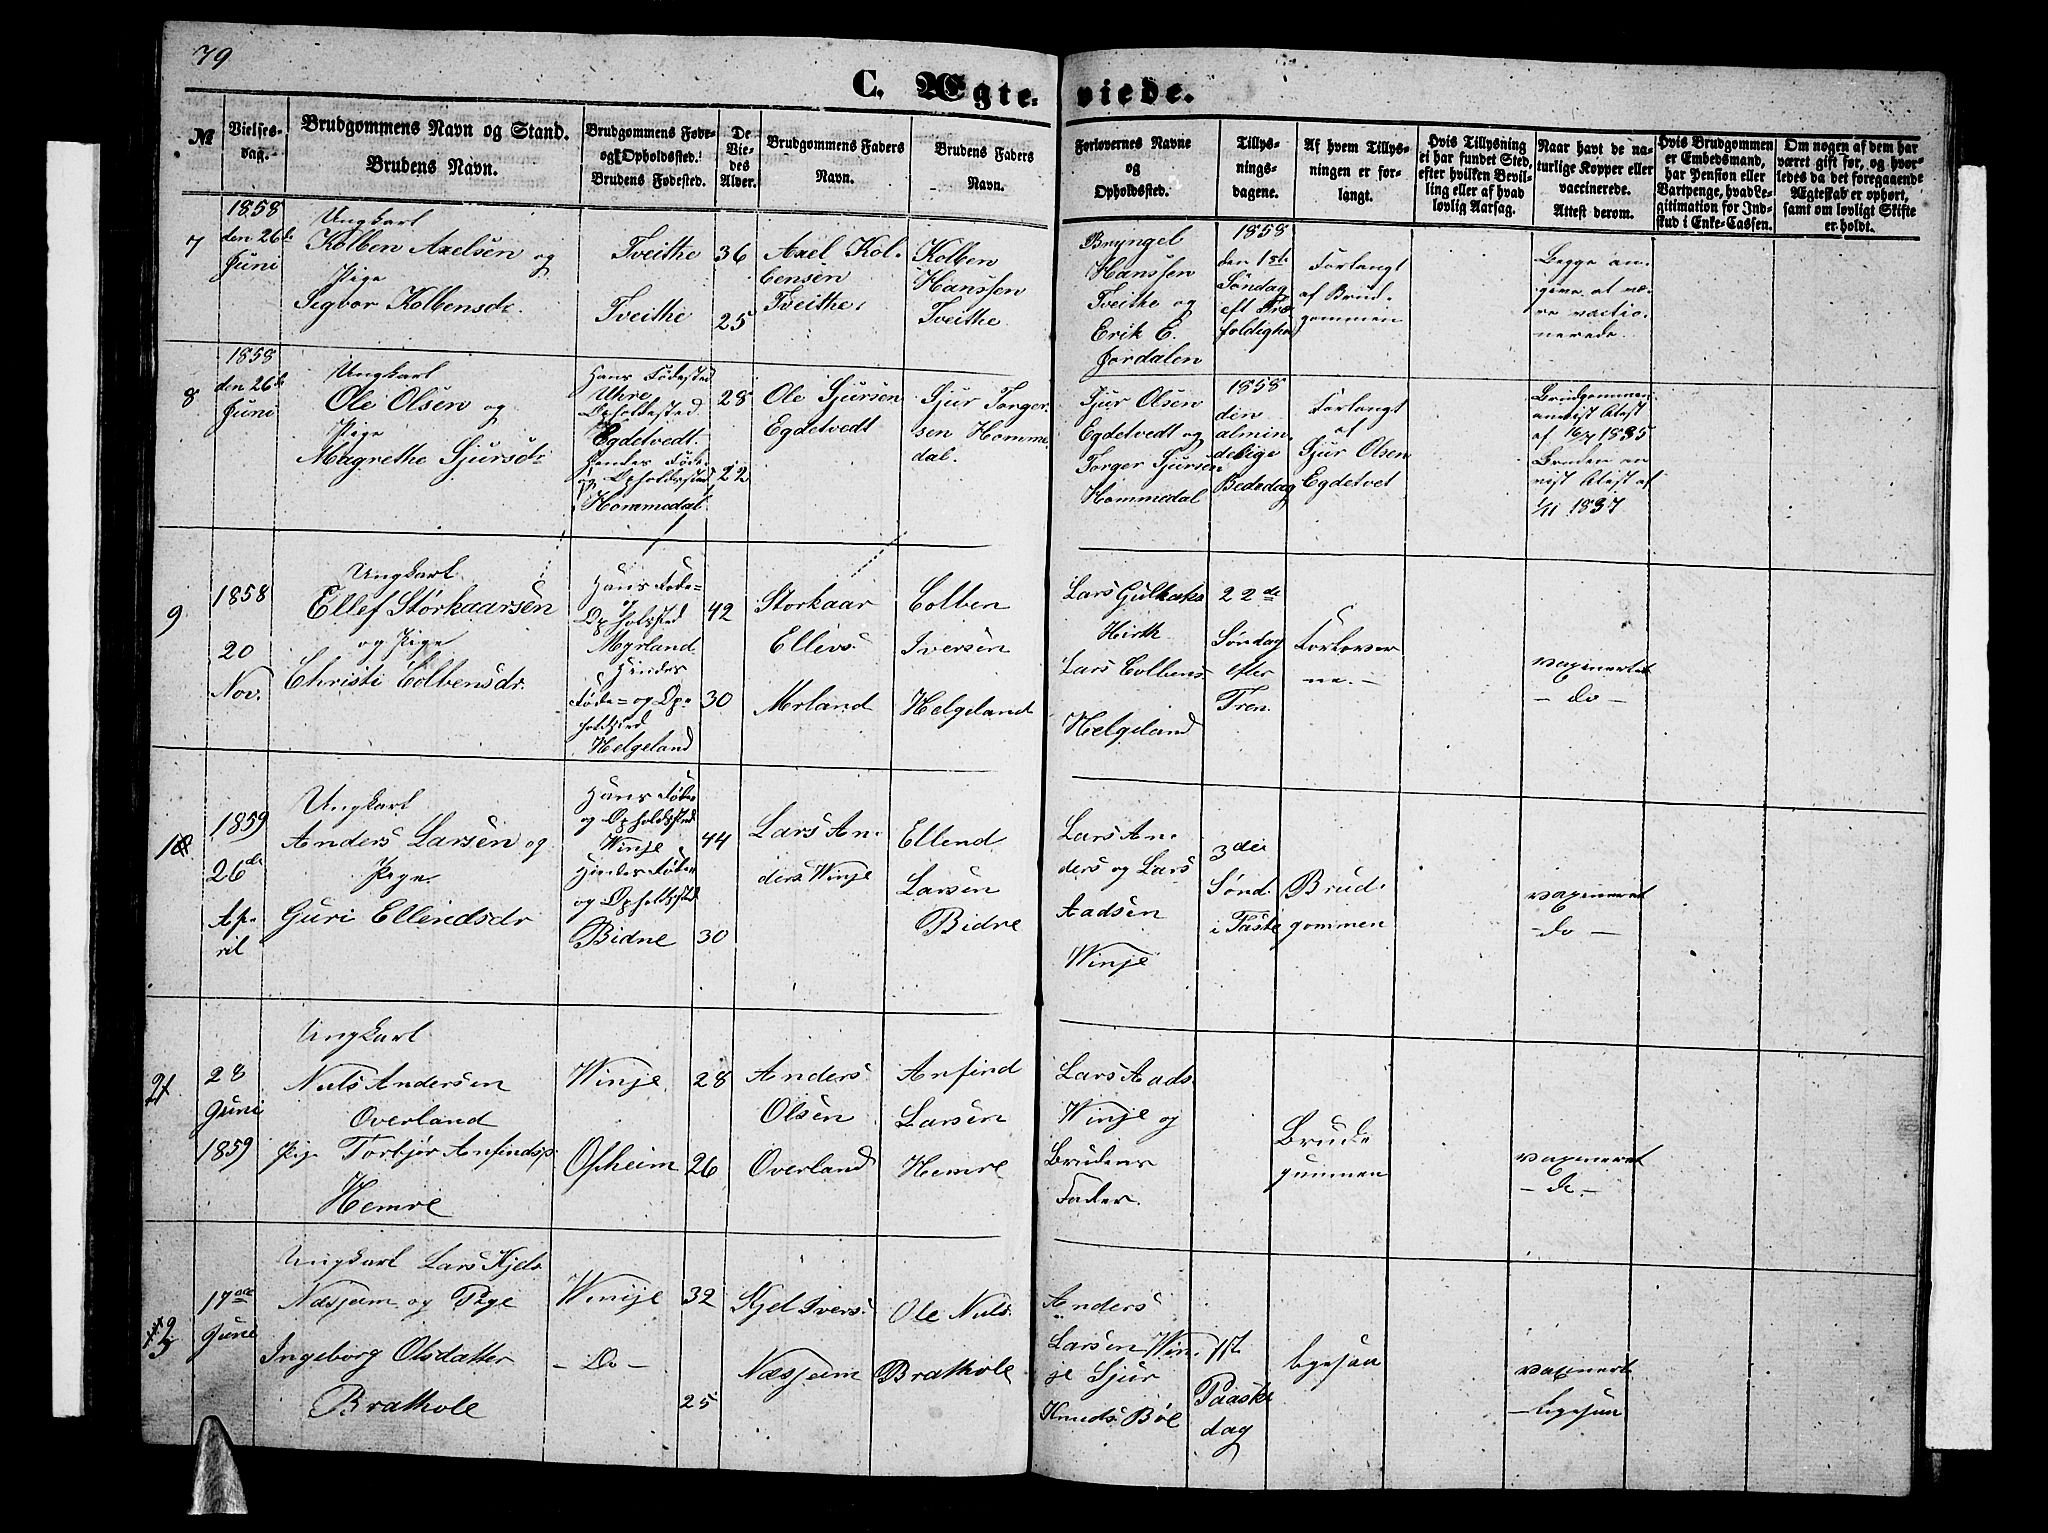 79
C. Ægteviede.
№
Vielsesdag.
Brudgommens Navn og Stand.
Brudens Navn.
Brudgommens Føde-
og Opholdssted.
Brudens Fødested.
De
Vie-
des
Alder.
Brudgommens Faders
Navn.
Brudens Faders
Navn.
Forlovernes Navne
og
Opholdssted.
Tillys-
nings-
dagene.
Af hvem Tillys-
ningen er for-
langt.
Hvis Tillysning
ei har fundet Sted,
efter hvilken Bevil-
ling eller af hvad
lovlig Aarsag.
Naar havt de na-
turlige Kopper eller
vaccinerede.
Attest derom.
Hvis Brudgommen
er Embedsmand,
har Pension eller
Vartpenge, hvad Le-
gitimation for Ind-
skud i Enke-Cassen.
Om nogen af dem har
været gift før, og hvor-
ledes da det foregaaende
Ægteskab er ophørt,
samt om lovligt Skifte
er holdt.
7
1858
den 26de
Juni
Ungkarl
Kolben Axelsen og
Pige
Sigvor Kolbensdr.
Tveithe
Tveithe
36
25
Axel Kol-
bensen
Tveithe.
Kolben
Hanssen
Tveithe
Bryngel
Hanssen
Tveithe og
Erik E.
Jordalen
1858
den 1ste
Søndag
eft Tre
foldighed
Forlangt
af Brud-
gommen
Begge an-
give at væ-
re vacci-
nerede.
8
1858
den 26de
Juni
Ungkarl
Ole Olsen og
Pige
Magrethe Sjursdr
Hans Fødested
Uhre
Opholdssted
Egdetvedt.
Hendes Føde-
og Opholdssted
Hommedal
28
22
Ole Sjursen
Egdetvedt
Sjur Torger-
sen Homme-
dal.
Sjur Olsen
Egdetvedt og
Torger Sjursen
Hommedal
1858
den
almin-
delige
Bededag
Forlangt
af
Sjur Olsen
Egdetvet
Brudgommen
anvist Atest
af 16/7 1835
Bruden an-
vist Atest af
1/11 1837
9
1858
20
Nov.
Ungkarl
Ellef Storkaarsen
og Pige
Christi Colbensdr.
Hans Føde=
og
Opholdssted
Myrland
Hendes
Føde= og Op=
holdssted
Helgeland
42
30
Storkaar
Ellevs.
Mrland
Colben
Iversen
Helgeland
Lars
Hirth
Lars Colbens
Helgeland
22de
Søndag
efter
Tren.
Forlover
ne.
vaxineret
- do -
10
1859
26de
Ap-
ril
Ungkarl
Anders Larsen og
Pige
Guri Ellendsdr
Hans Føde
og Opholdssted
Winje
Hendes Føde
og Opholdssted
Bidne
44
30
Lars An-
ders. Winje
Ellend
Larsen
Bidne
Lars An-
ders og Lars
Aadsen
Winje
3die
Sønd.
i Faste
Brud-
gommen
vaxineret
- do -
28
Juni
1859
Ungkarl
Nils Andersen
Overland
Pige Torbjør Anfindsd.
Hemre
Winje
Opheim
28
26
Anders
Olsen
Overland
Anfind
Larsen
Hemre
Lars Aads.
Winje og
Brudens
Fader.
Brude
gummen
vaxineret
- do -
17de
Juni
Ungkarl Lars Kjels.
Næsjeim og Pige
Ingeborg Olsdatter
Brathole
Winje
- Do -
32
25
Kjel Ivers.
Næsjeim
Ole Nils.
Brathole
Anders
Larsen Win-
je Sjur
Knuds. Bøe
1ste
Paaske
dag
ligesaa
vaxinert
- ligesaa